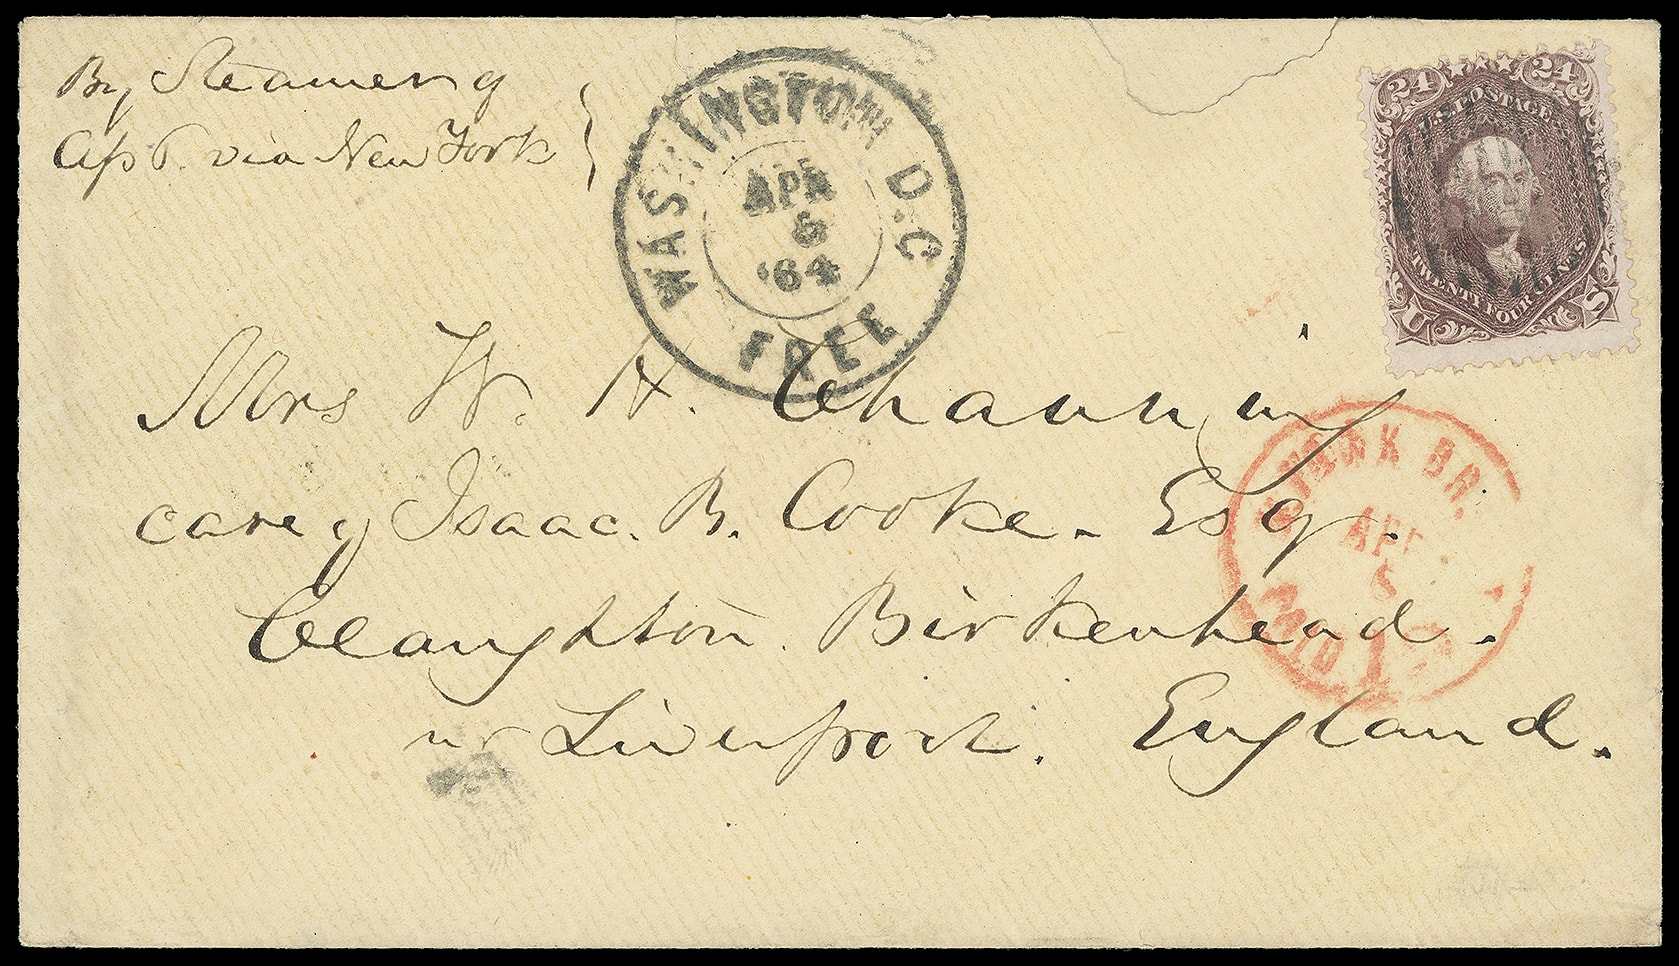 By Steamer of
Apl 9. via New York
WASHINGTON D.C.
APR
6
'64
FREE
24 24
U.S. POSTAGE
TWENTY FOUR CENTS
U S
Mrs W. H. Channing
care of Isaac. B. Cooke. Esq.
Claughton. Birkenhead.
nr Liverpool. England.
YORK BR.
APR
PAID